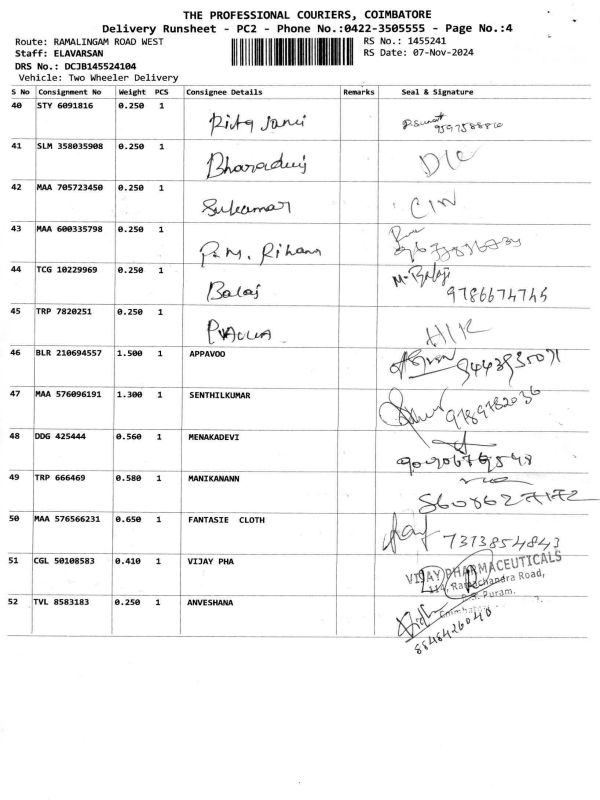 THE PROFESSIONAL COURIERS, COIMBATORE
Delivery Runsheet - PC2 - Phone No.:0422-3505555 - Page No.:4
Route: RAMALINGAM ROAD WEST RS No.: 1455241
Staff: ELAVARSAN RS Date: 07-Nov-2024
DRS No.: DCJB145524104
Vehicle: Two Wheeler Delivery
S No Consignment No Weight PCS Consignee Details Remarks Seal & Signature
40 STY 6091816 0.250 1
41 SLM 358035908 0.250 1 D/C
42 MAA 705723450 0.250 1 Sukumar
43 MAA 600335798 0.250 1 P.M. Rihana
44 TCG 10229969 0.250 1 Balaj M. Balaji
9786674745
45 TRP 7820251 0.250 1
46 BLR 210694557 1.500 1 APPAVOO 9443935071
47 MAA 576096191 1.300 1 SENTHILKUMAR 9789782036
48 DDG 425444 0.560 1 MENAKADEVI
49 TRP 666469 0.580 1 MANIKANANN 8608627172
50 MAA 576566231 0.650 1 FANTASIE CLOTH 7373854843
51 CGL 50108583 0.410 1 VIJAY PHA VIJAY PHARMACEUTICALS
114, Ramachandra Road,
R.S. Puram,
Coimbatore
52 TVL 8583183 0.250 1 ANVESHANA
8848426040